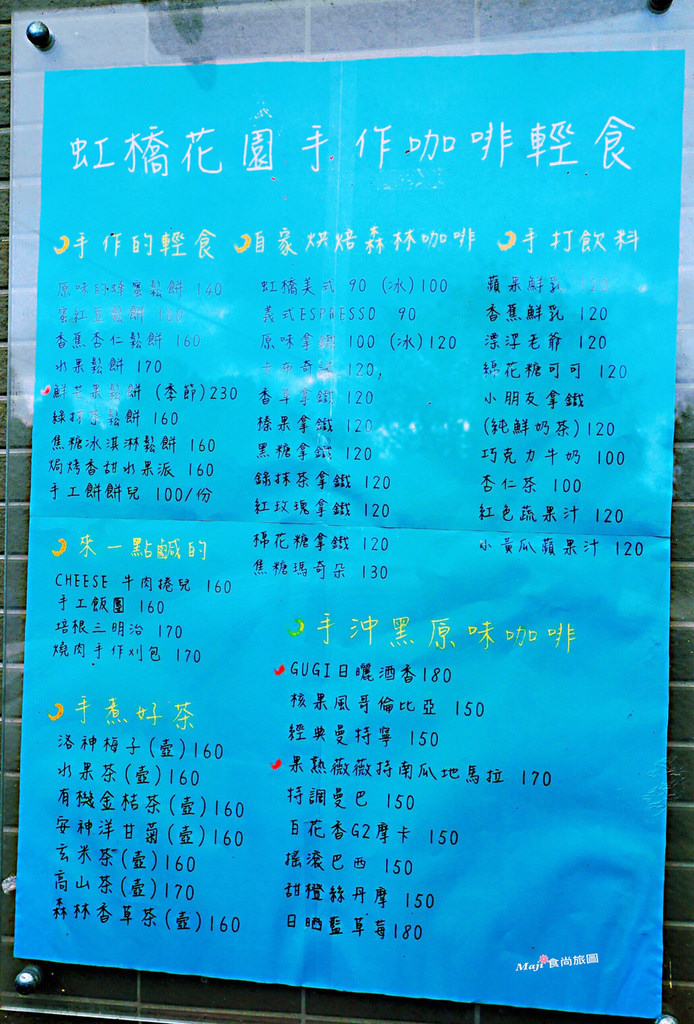 虹橋花園手作咖啡輕食
手作的輕食
原味的蜂蜜鬆餅 140
蜜紅豆鬆餅 160
香蕉杏仁鬆餅 160
水果鬆餅 170
鮮芒果鬆餅 (季節)230
綠抹茶鬆餅 160
焦糖冰淇淋鬆餅 160
焗烤香甜水果派 160
手工餅餅兒 100/份
來一點鹹的
CHEESE 牛肉捲兒 160
手工飯團 160
培根三明治 170
燒肉手作刈包 170
手煮好茶
洛神梅子(壺)160
水果茶(壺)160
有機金桔茶(壺)160
安神洋甘菊(壺)160
玄米茶(壺)160
高山茶(壺)170
森林香草茶(壺)160
自家烘焙森林咖啡
虹橋美式 90 (冰)100
義式ESPRESSO 90
原味拿鐵 100 (冰)120
卡布奇諾 120
香草拿鐵 120
榛果拿鐵 120
黑糖拿鐵 120
綠抹茶拿鐵 120
紅玫瑰拿鐵 120
棉花糖拿鐵 120
焦糖瑪奇朵 130
手沖黑原味咖啡
GUGI日曬酒香180
核果風哥倫比亞 150
經典曼特寧 150
果熱薇薇特南瓜地馬拉 170
特調曼巴 150
百花香G2摩卡 150
搖滾巴西 150
甜橙絲丹摩 150
日晒藍草莓180
手打飲料
蘋果鮮乳 120
香蕉鮮乳 120
漂浮老爺 120
綿花糖可可 120
小朋友拿鐵
(純鮮奶茶)120
巧克力牛奶 100
杏仁茶 100
紅色蔬果汁 120
小黃瓜蘋果汁 120
Maji 食尚旅圖